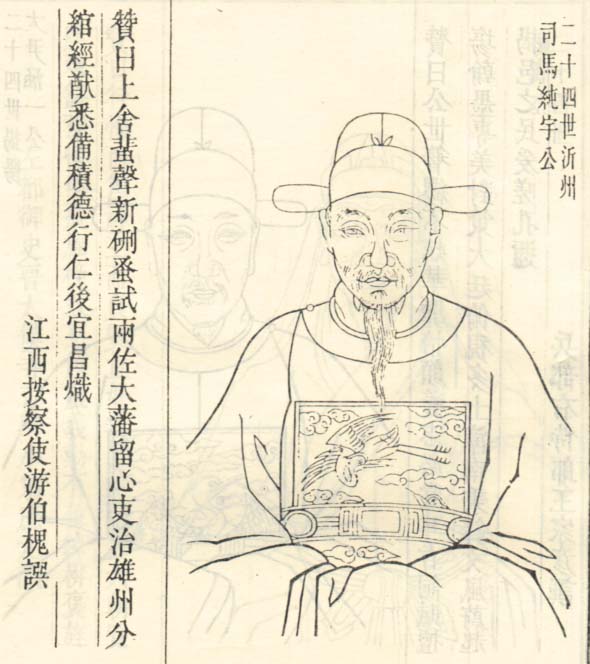 二十四世沂州
司馬純宇公
贊曰上舍蜚聲新硎蚤試兩佐大藩留心吏治雄州分
綰經猷悉備積德行仁後宜昌熾
江西按察使游伯槐譔